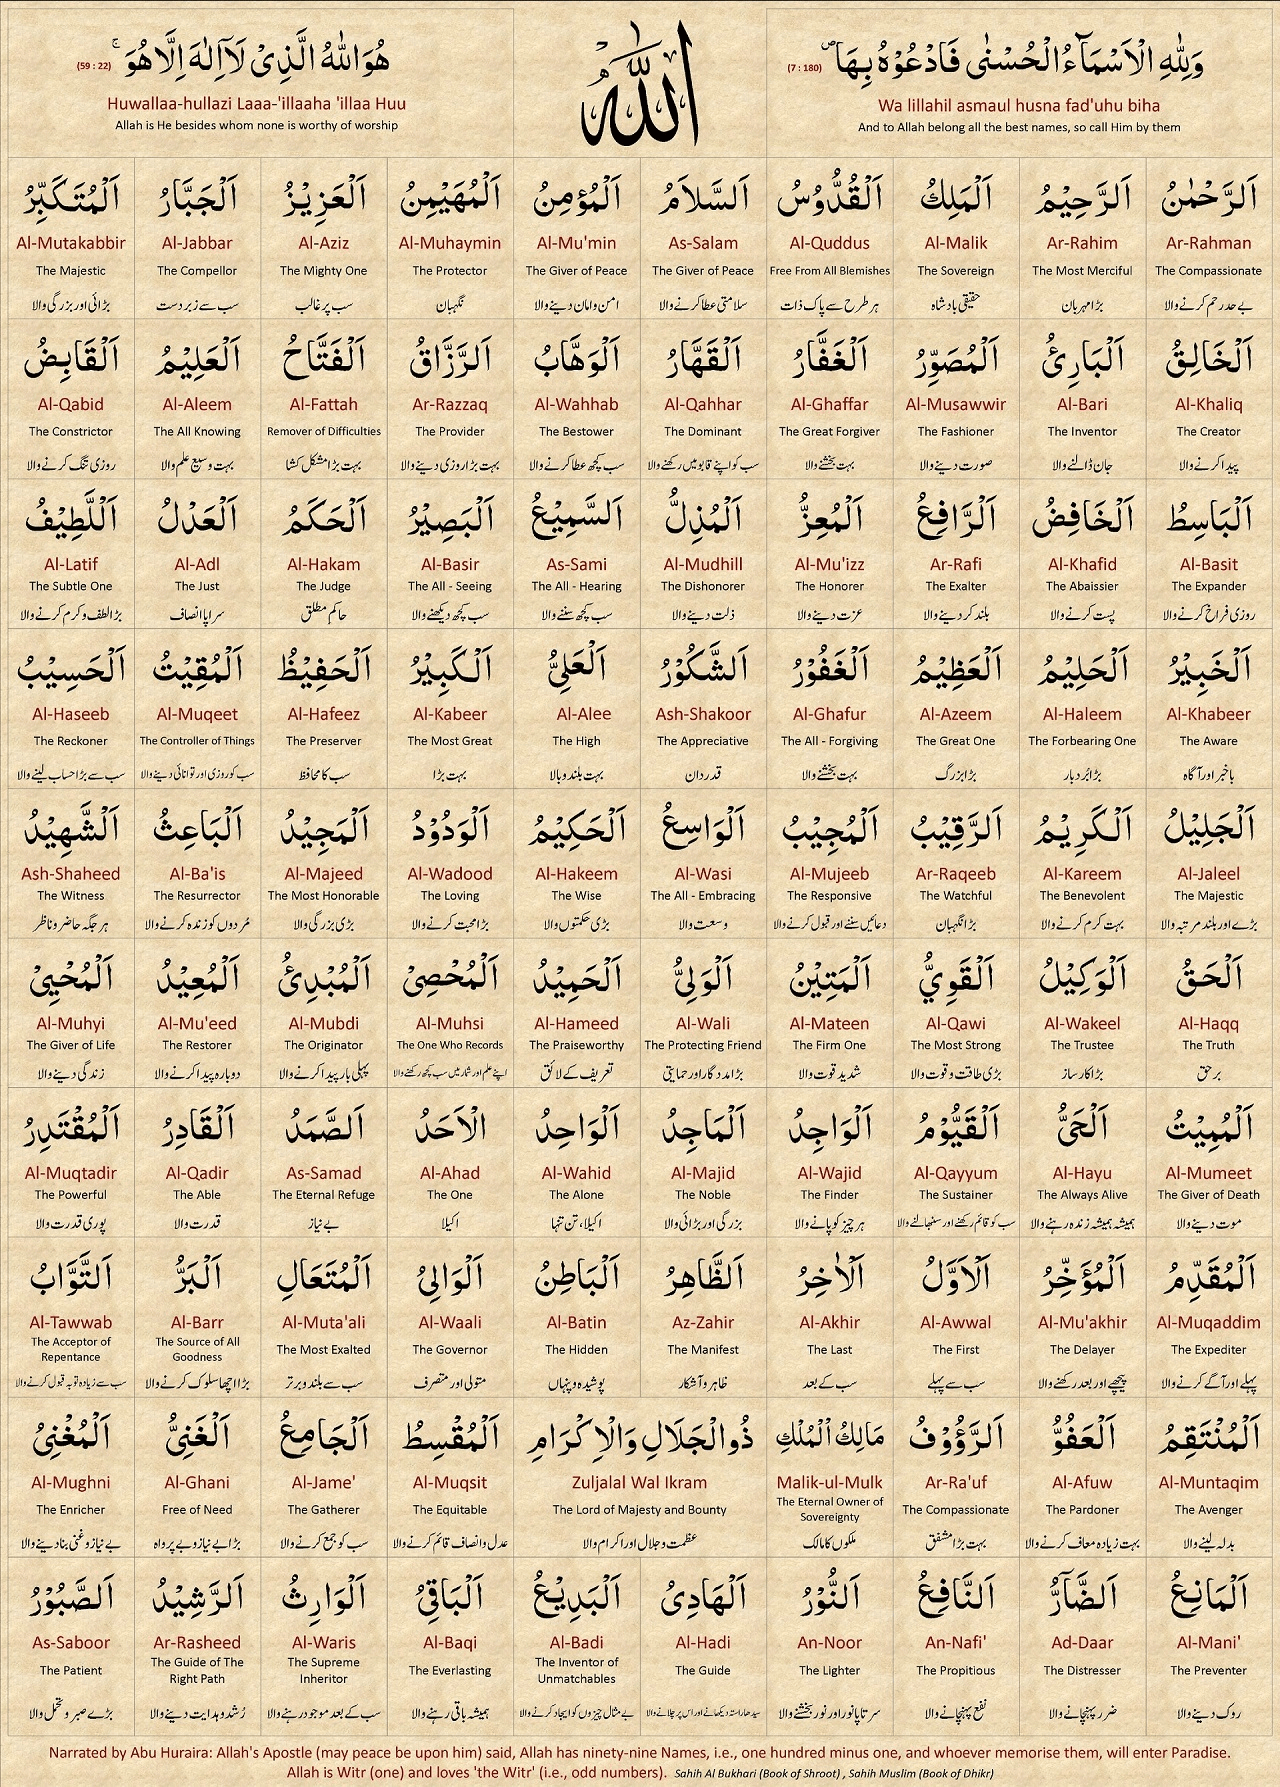 وَلِلّٰهِ الْاَسْمَآءُ الْحُسْنٰى فَادْعُوْهُ بِهَا ۖ (7 : 180)
Wa lillahil asmaul husna fad'uhu biha
And to Allah belong all the best names, so call Him by them
اللّٰه
هُوَ اللّٰهُ الَّذِیْ لَاۤ اِلٰهَ اِلَّا هُوَ ۚ (59 : 22)
Huwallaa-hullazi Laaa-'illaaha 'illaa Huu
Allah is He besides whom none is worthy of worship
اَلرَّحْمٰنُ
Ar-Rahman
The Compassionate
بے حد رحم کرنے والا
اَلرَّحِیْمُ
Ar-Rahim
The Most Merciful
بڑا مہربان
اَلْمَلِكُ
Al-Malik
The Sovereign
حقیقی بادشاہ
اَلْقُدُّوْسُ
Al-Quddus
Free From All Blemishes
ہر طرح سے پاک ذات
اَلسَّلَامُ
As-Salam
The Giver of Peace
سلامتی عطا کرنے والا
اَلْمُؤْمِنُ
Al-Mu'min
The Giver of Peace
امن و امان دینے والا
اَلْمُهَیْمِنُ
Al-Muhaymin
The Protector
نگہبان
اَلْعَزِیْزُ
Al-Aziz
The Mighty One
سب پر غالب
اَلْجَبَّارُ
Al-Jabbar
The Compellor
سب سے زبردست
اَلْمُتَكَبِّرُ
Al-Mutakabbir
The Majestic
بڑائی اور بزرگی والا
اَلْخَالِقُ
Al-Khaliq
The Creator
پیدا کرنے والا
اَلْبَارِئُ
Al-Bari
The Inventor
جان ڈالنے والا
اَلْمُصَوِّرُ
Al-Musawwir
The Fashioner
صورت دینے والا
اَلْغَفَّارُ
Al-Ghaffar
The Great Forgiver
بہت بخشنے والا
اَلْقَهَّارُ
Al-Qahhar
The Dominant
سب کو اپنے قابو میں رکھنے والا
اَلْوَهَّابُ
Al-Wahhab
The Bestower
سب کچھ عطا کرنے والا
اَلرَّزَّاقُ
Ar-Razzaq
The Provider
بہت بڑا روزی دینے والا
اَلْفَتَّاحُ
Al-Fattah
Remover of Difficulties
بہت بڑا مشکل کشا
اَلْعَلِیْمُ
Al-Aleem
The All Knowing
بہت وسیع علم والا
اَلْقَابِضُ
Al-Qabid
The Constrictor
روزی تنگ کرنے والا
اَلْبَاسِطُ
Al-Basit
The Expander
روزی فراخ کرنے والا
اَلْخَافِضُ
Al-Khafid
The Abaissier
پست کرنے والا
اَلرَّافِعُ
Ar-Rafi
The Exalter
بلند کر دینے والا
اَلْمُعِزُّ
Al-Mu'izz
The Honorer
عزت دینے والا
اَلْمُذِلُّ
Al-Mudhill
The Dishonorer
ذلت دینے والا
اَلسَّمِیْعُ
As-Sami
The All - Hearing
سب کچھ سننے والا
اَلْبَصِیْرُ
Al-Basir
The All - Seeing
سب کچھ دیکھنے والا
اَلْحَكَمُ
Al-Hakam
The Judge
حاکم مطلق
اَلْعَدْلُ
Al-Adl
The Just
سراپا انصاف
اَللَّطِیْفُ
Al-Latif
The Subtle One
بڑا لطف و کرم کرنے والا
اَلْخَبِیْرُ
Al-Khabeer
The Aware
باخبر اور آگاہ
اَلْحَلِیْمُ
Al-Haleem
The Forbearing One
بڑا بُردبار
اَلْعَظِیْمُ
Al-Azeem
The Great One
بڑا بزرگ
اَلْغَفُوْرُ
Al-Ghafur
The All - Forgiving
بہت بخشنے والا
اَلشَّكُوْرُ
Ash-Shakoor
The Appreciative
قدردان
اَلْعَلِیُّ
Al-Alee
The High
بہت بلند و بالا
اَلْكَبِیْرُ
Al-Kabeer
The Most Great
بہت بڑا
اَلْحَفِیْظُ
Al-Hafeez
The Preserver
سب کا محافظ
اَلْمُقِیْتُ
Al-Muqeet
The Controller of Things
سب کو روزی اور توانائی دینے والا
اَلْحَسِیْبُ
Al-Haseeb
The Reckoner
سب سے بڑا حساب لینے والا
اَلْجَلِیْلُ
Al-Jaleel
The Majestic
بڑے اور بلند مرتبہ والا
اَلْكَرِیْمُ
Al-Kareem
The Benevolent
بہت کرم کرنے والا
اَلرَّقِیْبُ
Ar-Raqeeb
The Watchful
بڑا نگہبان
اَلْمُجِیْبُ
Al-Mujeeb
The Responsive
دعائیں سننے اور قبول کرنے والا
اَلْوَاسِعُ
Al-Wasi
The All - Embracing
وسعت والا
اَلْحَكِیْمُ
Al-Hakeem
The Wise
بڑی حکمتوں والا
اَلْوَدُوْدُ
Al-Wadood
The Loving
بڑا محبت کرنے والا
اَلْمَجِیْدُ
Al-Majeed
The Most Honorable
بڑی بزرگی والا
اَلْبَاعِثُ
Al-Ba'is
The Resurrector
مُردوں کو زندہ کرنے والا
اَلشَّهِیْدُ
Ash-Shaheed
The Witness
ہر جگہ حاضر و ناظر
اَلْحَقُّ
Al-Haqq
The Truth
برحق
اَلْوَكِیْلُ
Al-Wakeel
The Trustee
بڑا کارساز
اَلْقَوِیُّ
Al-Qawi
The Most Strong
بڑی طاقت و قوت والا
اَلْمَتِیْنُ
Al-Mateen
The Firm One
شدید قوت والا
اَلْوَلِیُّ
Al-Wali
The Protecting Friend
بڑا مددگار اور حمایتی
اَلْحَمِیْدُ
Al-Hameed
The Praiseworthy
تعریف کے لائق
اَلْمُحْصِیْ
Al-Muhsi
The One Who Records
اپنے علم اور شمار میں سب کچھ رکھنے والا
اَلْمُبْدِئُ
Al-Mubdi
The Originator
پہلی بار پیدا کرنے والا
اَلْمُعِیْدُ
Al-Mu'eed
The Restorer
دوبارہ پیدا کرنے والا
اَلْمُحْیِیْ
Al-Muhyi
The Giver of Life
زندگی دینے والا
اَلْمُمِیْتُ
Al-Mumeet
The Giver of Death
موت دینے والا
اَلْحَیُّ
Al-Hayu
The Always Alive
ہمیشہ ہمیشہ زندہ رہنے والا
اَلْقَیُّوْمُ
Al-Qayyum
The Sustainer
سب کو قائم رکھنے اور سنبھالنے والا
اَلْوَاجِدُ
Al-Wajid
The Finder
ہر چیز کو پانے والا
اَلْمَاجِدُ
Al-Majid
The Noble
بزرگی اور بڑائی والا
اَلْوَاحِدُ
Al-Wahid
The Alone
اکیلا، تن تنہا
اَلْاَحَدُ
Al-Ahad
The One
اکیلا
اَلصَّمَدُ
As-Samad
The Eternal Refuge
بے نیاز
اَلْقَادِرُ
Al-Qadir
The Able
قدرت والا
اَلْمُقْتَدِرُ
Al-Muqtadir
The Powerful
پوری قدرت والا
اَلْمُقَدِّمُ
Al-Muqaddim
The Expediter
پہلے اور آگے کرنے والا
اَلْمُؤَخِّرُ
Al-Mu'akhir
The Delayer
پیچھے اور بعد رکھنے والا
اَلْاَوَّلُ
Al-Awwal
The First
سب سے پہلے
اَلْاٰخِرُ
Al-Akhir
The Last
سب کے بعد
اَلظَّاهِرُ
Az-Zahir
The Manifest
ظاہر و آشکار
اَلْبَاطِنُ
Al-Batin
The Hidden
پوشیدہ و پنہاں
اَلْوَالِیُ
Al-Waali
The Governor
متولی اور متصرف
اَلْمُتَعَالِ
Al-Muta'ali
The Most Exalted
سب سے بلند و برتر
اَلْبَرُّ
Al-Barr
The Source of All
Goodness
بڑا اچھا سلوک کرنے والا
اَلتَّوَّابُ
Al-Tawwab
The Acceptor of
Repentance
سب سے زیادہ توبہ قبول کرنے والا
اَلْمُنْتَقِمُ
Al-Muntaqim
The Avenger
بدلہ لینے والا
اَلْعَفُوُّ
Al-Afuw
The Pardoner
بہت زیادہ معاف کرنے والا
اَلرَّؤُوْفُ
Ar-Ra'uf
The Compassionate
بہت بڑا مشفق
مَالِكُ الْمُلْكِ
Malik-ul-Mulk
The Eternal Owner of
Sovereignty
ملکوں کا مالک
ذُوالْجَلَالِ وَالْاِكْرَامِ
Zuljalal Wal Ikram
The Lord of Majesty and Bounty
عظمت و جلال اور اکرام والا
اَلْمُقْسِطُ
Al-Muqsit
The Equitable
عدل و انصاف قائم کرنے والا
اَلْجَامِعُ
Al-Jame'
The Gatherer
سب کو جمع کرنے والا
اَلْغَنِیُّ
Al-Ghani
Free of Need
بڑا بے نیاز و بے پرواہ
اَلْمُغْنِیُ
Al-Mughni
The Enricher
بے نیاز و غنی بنا دینے والا
اَلْمَانِعُ
Al-Mani'
The Preventer
روک دینے والا
اَلضَّآرُّ
Ad-Daar
The Distresser
ضرر پہنچانے والا
اَلنَّافِعُ
An-Nafi'
The Propitious
نفع پہنچانے والا
اَلنُّوْرُ
An-Noor
The Lighter
سر تا پا نور اور نور بخشنے والا
اَلْهَادِیُ
Al-Hadi
The Guide
سیدھا راستہ دیکھانے اور اس پر چلانے والا
اَلْبَدِیْعُ
Al-Badi
The Inventor of
Unmatchables
بے مثال چیزوں کو ایجاد کرنے والا
اَلْبَاقِیُ
Al-Baqi
The Everlasting
ہمیشہ باقی رہنے والا
اَلْوَارِثُ
Al-Waris
The Supreme
Inheritor
سب کے بعد موجود رہنے والا
اَلرَّشِیْدُ
Ar-Rasheed
The Guide of The
Right Path
رُشد و ہدایت دینے والا
اَلصَّبُوْرُ
As-Saboor
The Patient
بڑے صبر و تحمل والا
Narrated by Abu Huraira: Allah's Apostle (may peace be upon him) said, Allah has ninety-nine Names, i.e., one hundred minus one, and whoever memorise them, will enter Paradise.
Allah is Witr (one) and loves 'the Witr' (i.e., odd numbers). Sahih Al Bukhari (Book of Shroot) , Sahih Muslim (Book of Dhikr)